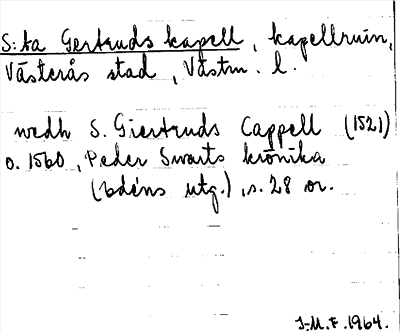 S:ta Gertruds kapell, kapellruin,
Västerås stad, Västm. l.
wedh S. Giertruds Cappell (1521)
o. 1560, Peder Swarts krönika
(Edéns utg.), s. 28 or.
I-M. F. 1964.